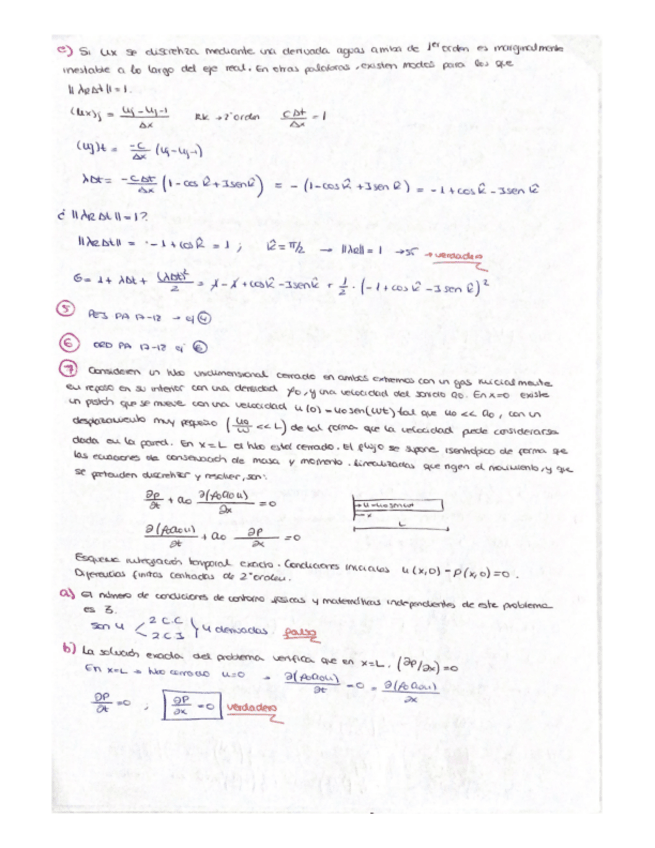 c) Si Ux se discretiza mediante una derivada aguas arriba de 1er orden es marginalmente
inestable a lo largo del eje real. En otras palabras, existen modos para los que
||λR Δt|| = 1.
(Ux)j = (Uj - Uj-1)/Δx RK → 2º orden CΔt/Δx = 1
(Uj)t = -C/Δx (Uj - Uj-1)
λΔt = -CΔt/Δx (1 - cos k̂ + J sen k̂) = -(1 - cos k̂ + J sen k̂) = -1 + cos k̂ - J sen k̂
¿ ||λR Δt|| = 1?
||λR Δt|| = -1 + cos k̂ = 1 ; k̂ = π/2 → ||λR|| = 1 → sí → verdadero
G = 1 + λΔt + (λΔt)²/2 = 1 - 1 + cos k̂ - J sen k̂ + 1/2 · (-1 + cos k̂ - J sen k̂)²
5 PEJ PA 17-18 → ej 4
6 ORD PA 17-18 ej 6
7 Consideren un tubo unidimensional cerrado en ambos extremos con un gas inicialmente
en reposo en su interior con una densidad ρo, y una velocidad del sonido ao. En x=0 existe
un pistón que se mueve con una velocidad u(0) = uo sen(ωt) tal que uo << ao, con un
desplazamiento muy pequeño (uo/ω << L) de tal forma que la velocidad puede considerarse
dada en la pared. En x = L el tubo está cerrado. El flujo se supone isentrópico de forma que
las ecuaciones de conservación de masa y momento linealizadas que rigen el movimiento, y que
se pretenden discretizar y resolver, son:
∂p/∂t + ao ∂(ρo ao u)/∂x = 0
→ u = uo sen ωt
→ x
L
∂(ρo ao u)/∂t + ao ∂p/∂x = 0
Esquema integración temporal exacto. Condiciones iniciales u(x,0) = p(x,0) = 0.
Diferencias finitas centradas de 2º orden.
a) El número de condiciones de contorno físicas y matemáticas independientes de este problema
es 3.
Son 4 < 2 CC 2 CI } 4 derivadas falso
b) La solución exacta del problema verifica que en x=L. (∂p/∂x) = 0
En x=L → tubo cerrado u=0 → ∂(ρo ao u)/∂t = 0 = ∂(ρo ao u)/∂x
∂p/∂t = 0 ; ∂p/∂x = 0 verdadero